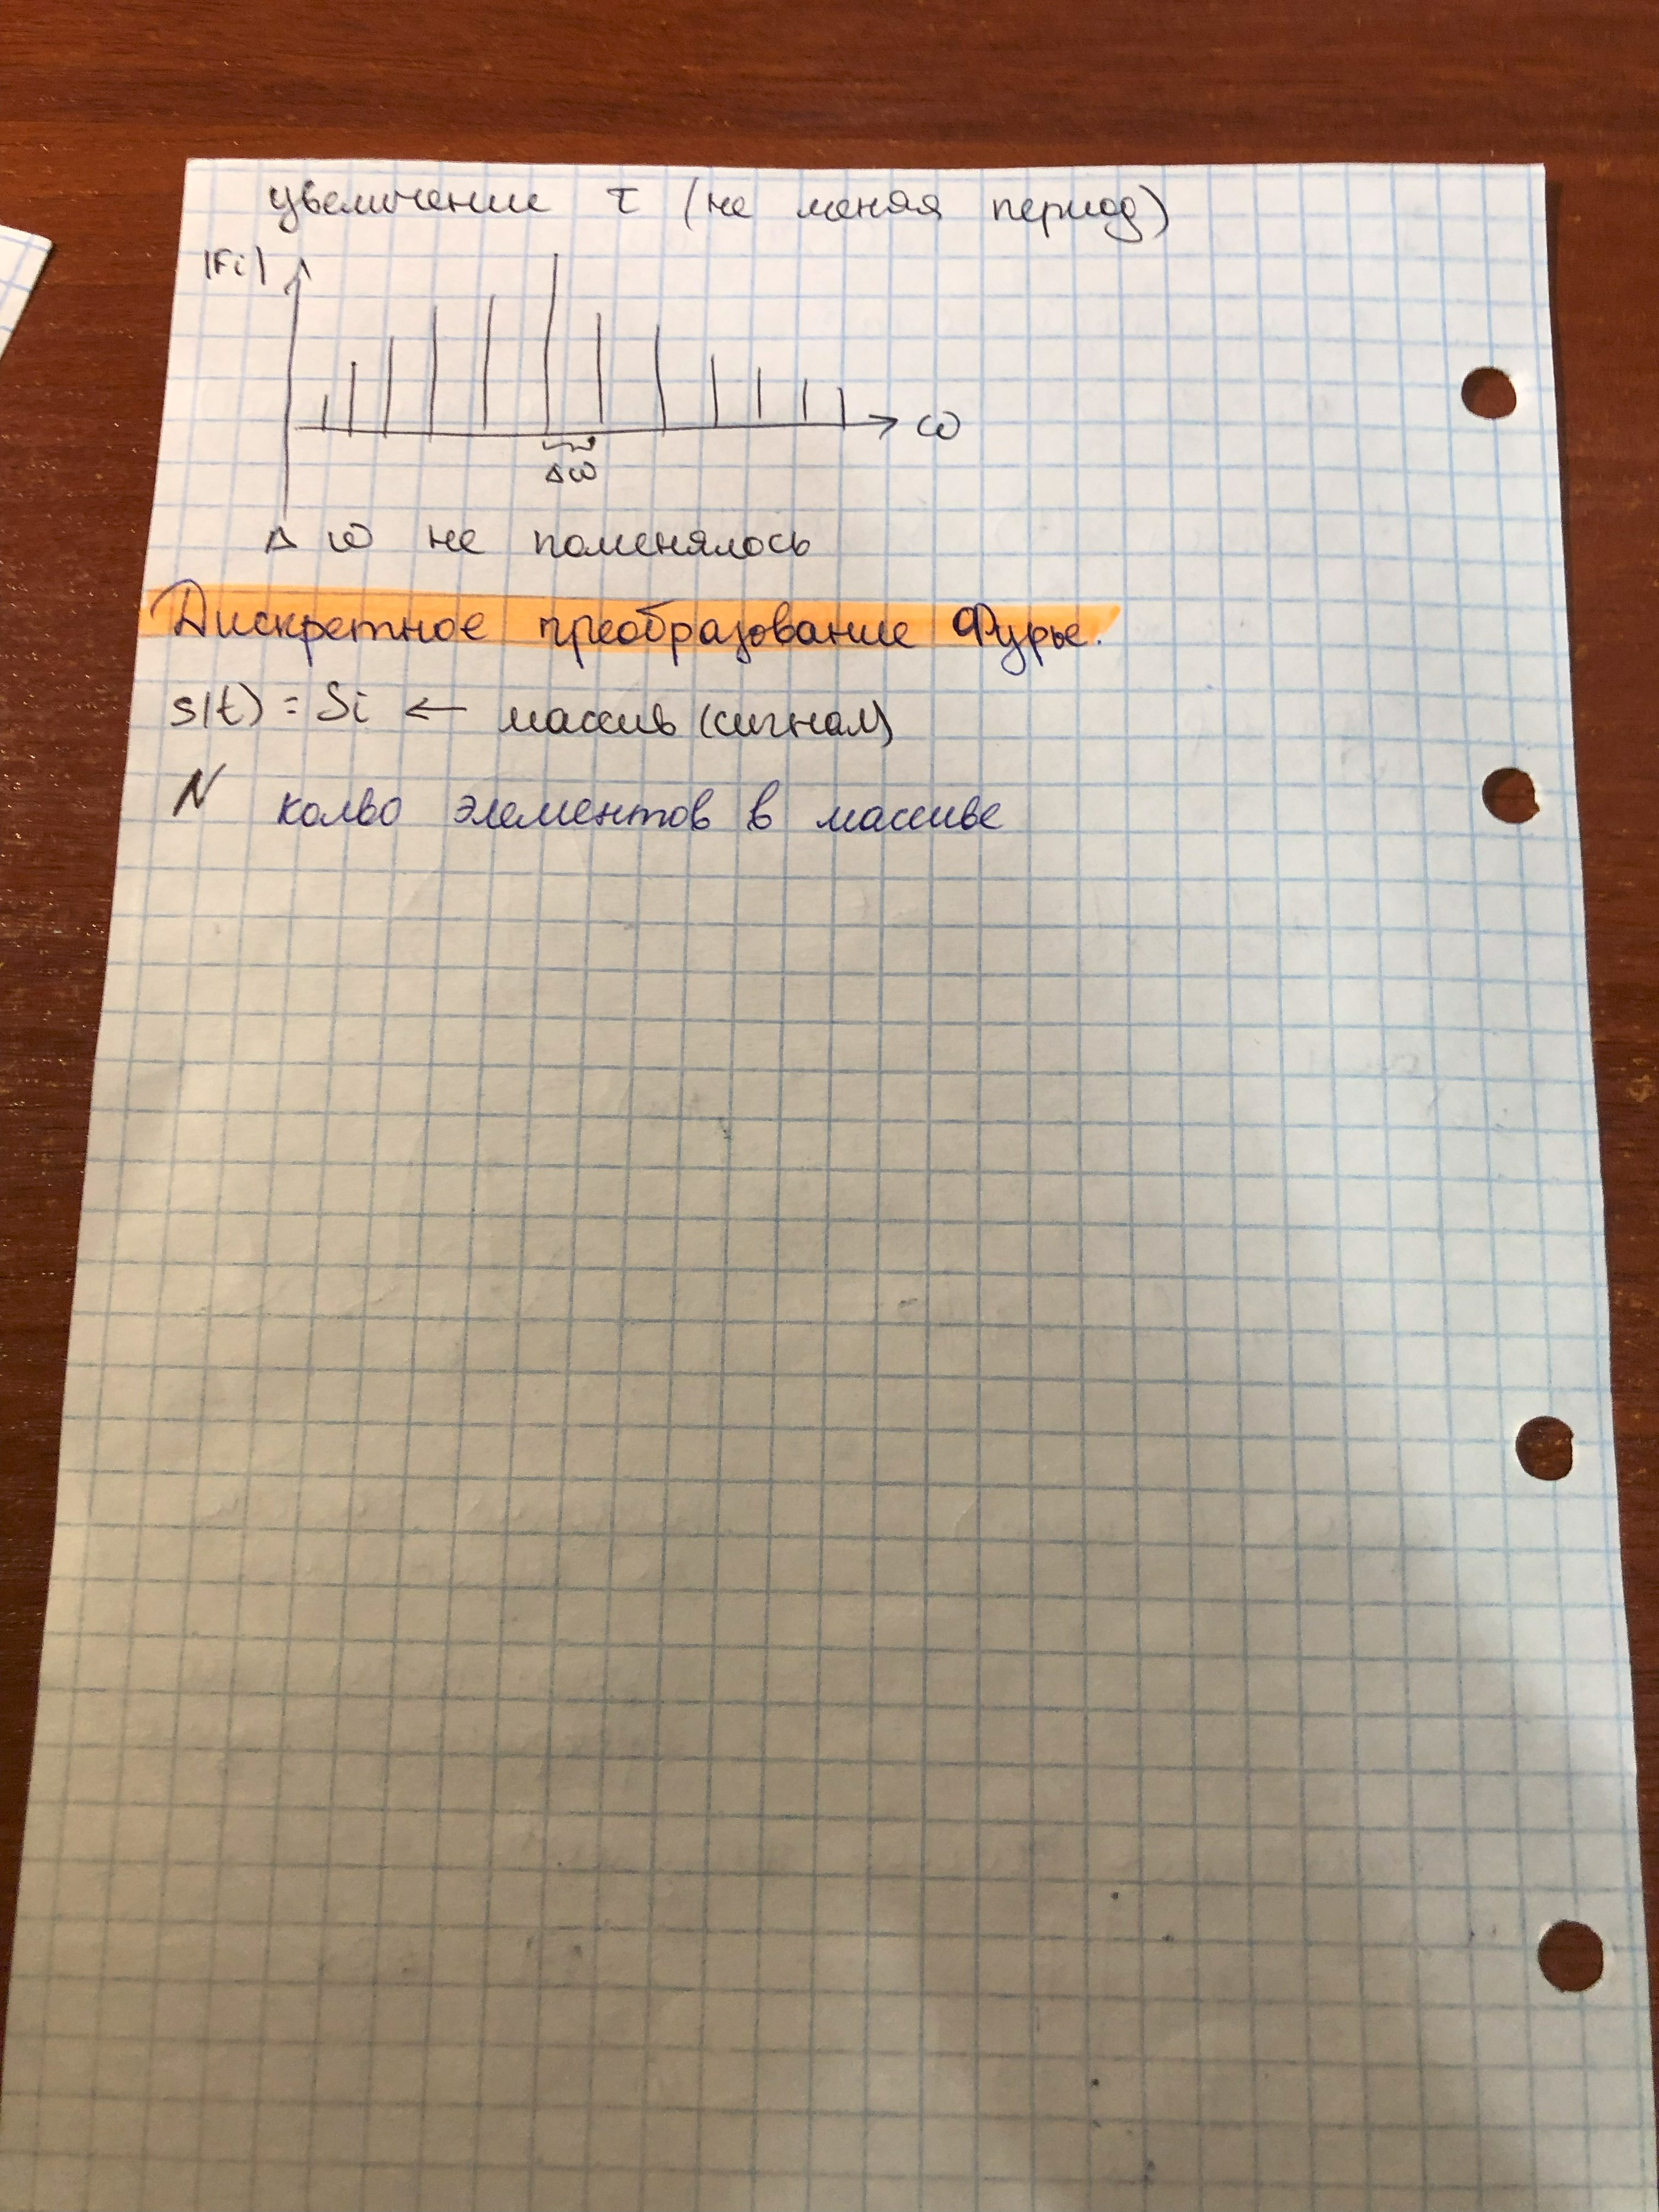 увеличение τ (не меняя период)
|Fi|
ω
Δω
Δ ω не поменялось
Дискретное преобразование Фурье.
s(t) = Si ← массив (сигнал)
N колво элементов в массиве